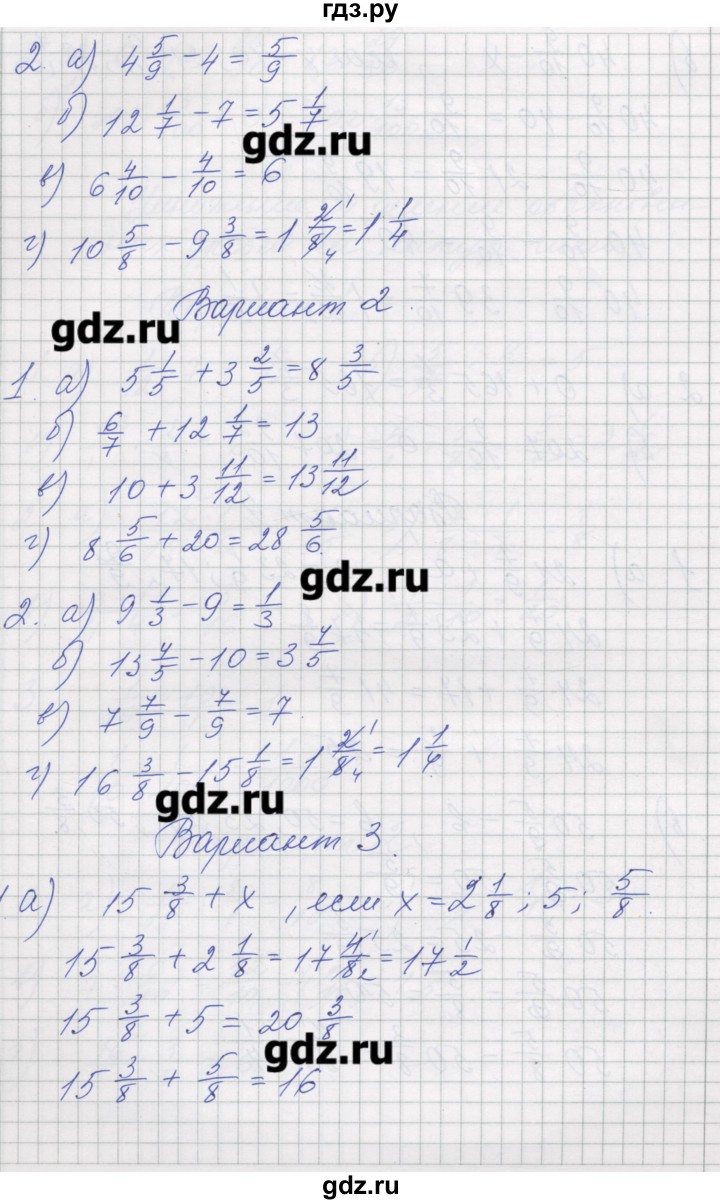 гдз.ру
2. а) 4 5/9 - 4 = 5/9
б) 12 1/7 - 7 = 5 1/7
gdz.ru
в) 6 4/10 - 4/10 = 6
г) 10 5/8 - 9 3/8 = 1 2/8 1 4 = 1 1/4
Вариант 2.
gdz.ru
1 а) 5 1/5 + 3 2/5 = 8 3/5
б) 6/7 + 12 1/7 = 13
в) 10 + 3 11/12 = 13 11/12
г) 8 5/6 + 20 = 28 5/6
gdz.ru
2. а) 9 1/3 - 9 = 1/3
б) 13 4/5 - 10 = 3 4/5
в) 7 7/9 - 7/9 = 7
г) 16 3/8 - 15 1/8 = 1 2/8 1 4 = 1 1/4
gdz.ru
Вариант 3.
1 а) 15 3/8 + x , если x = 2 1/8 ; 5 ; 5/8
15 3/8 + 2 1/8 = 17 4/8 1 2 = 17 1/2
15 3/8 + 5 = 20 3/8
gdz.ru
15 3/8 + 5/8 = 16
gdz.ru